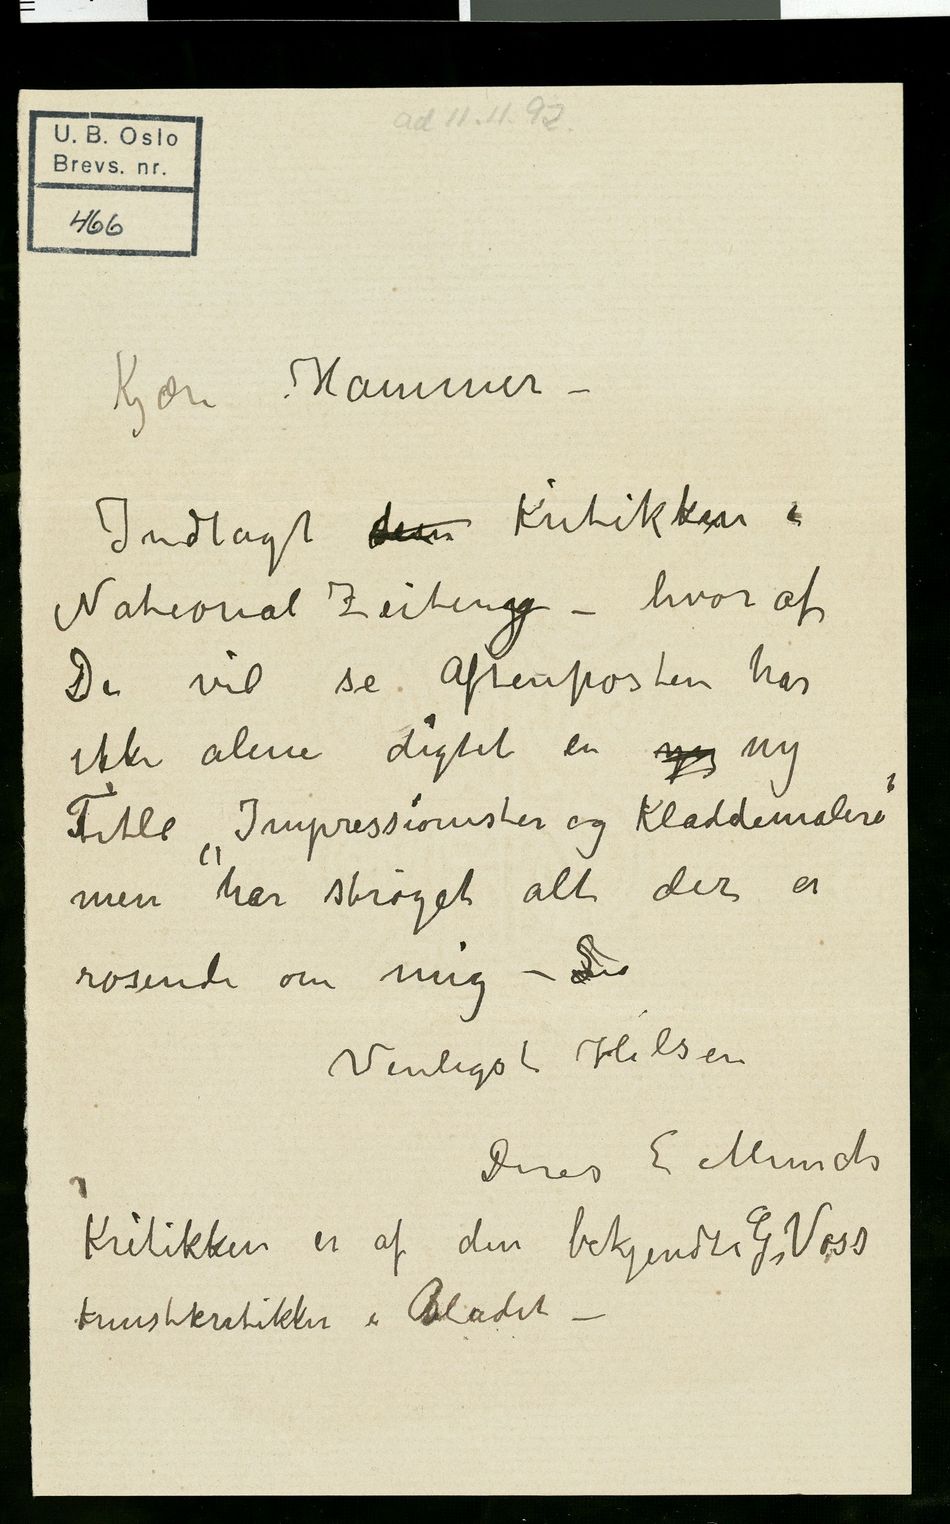 ad 11.11.92.
U. B. Oslo
Brevs. nr.
466
Kjære Hammer –
Indlagt den Kritikken i
National Zeitung – hvor af
De vil se Aftenposten har
ikke alene digtet en ny
Titlel „Impressionister og Kladdemalere"
men har strøget alt der er
rosende om mig –
Venligst Hilsen
Deres E Munch
Kritikken er af den bekjendte G, Voss
kunstkritikker i Bladet –